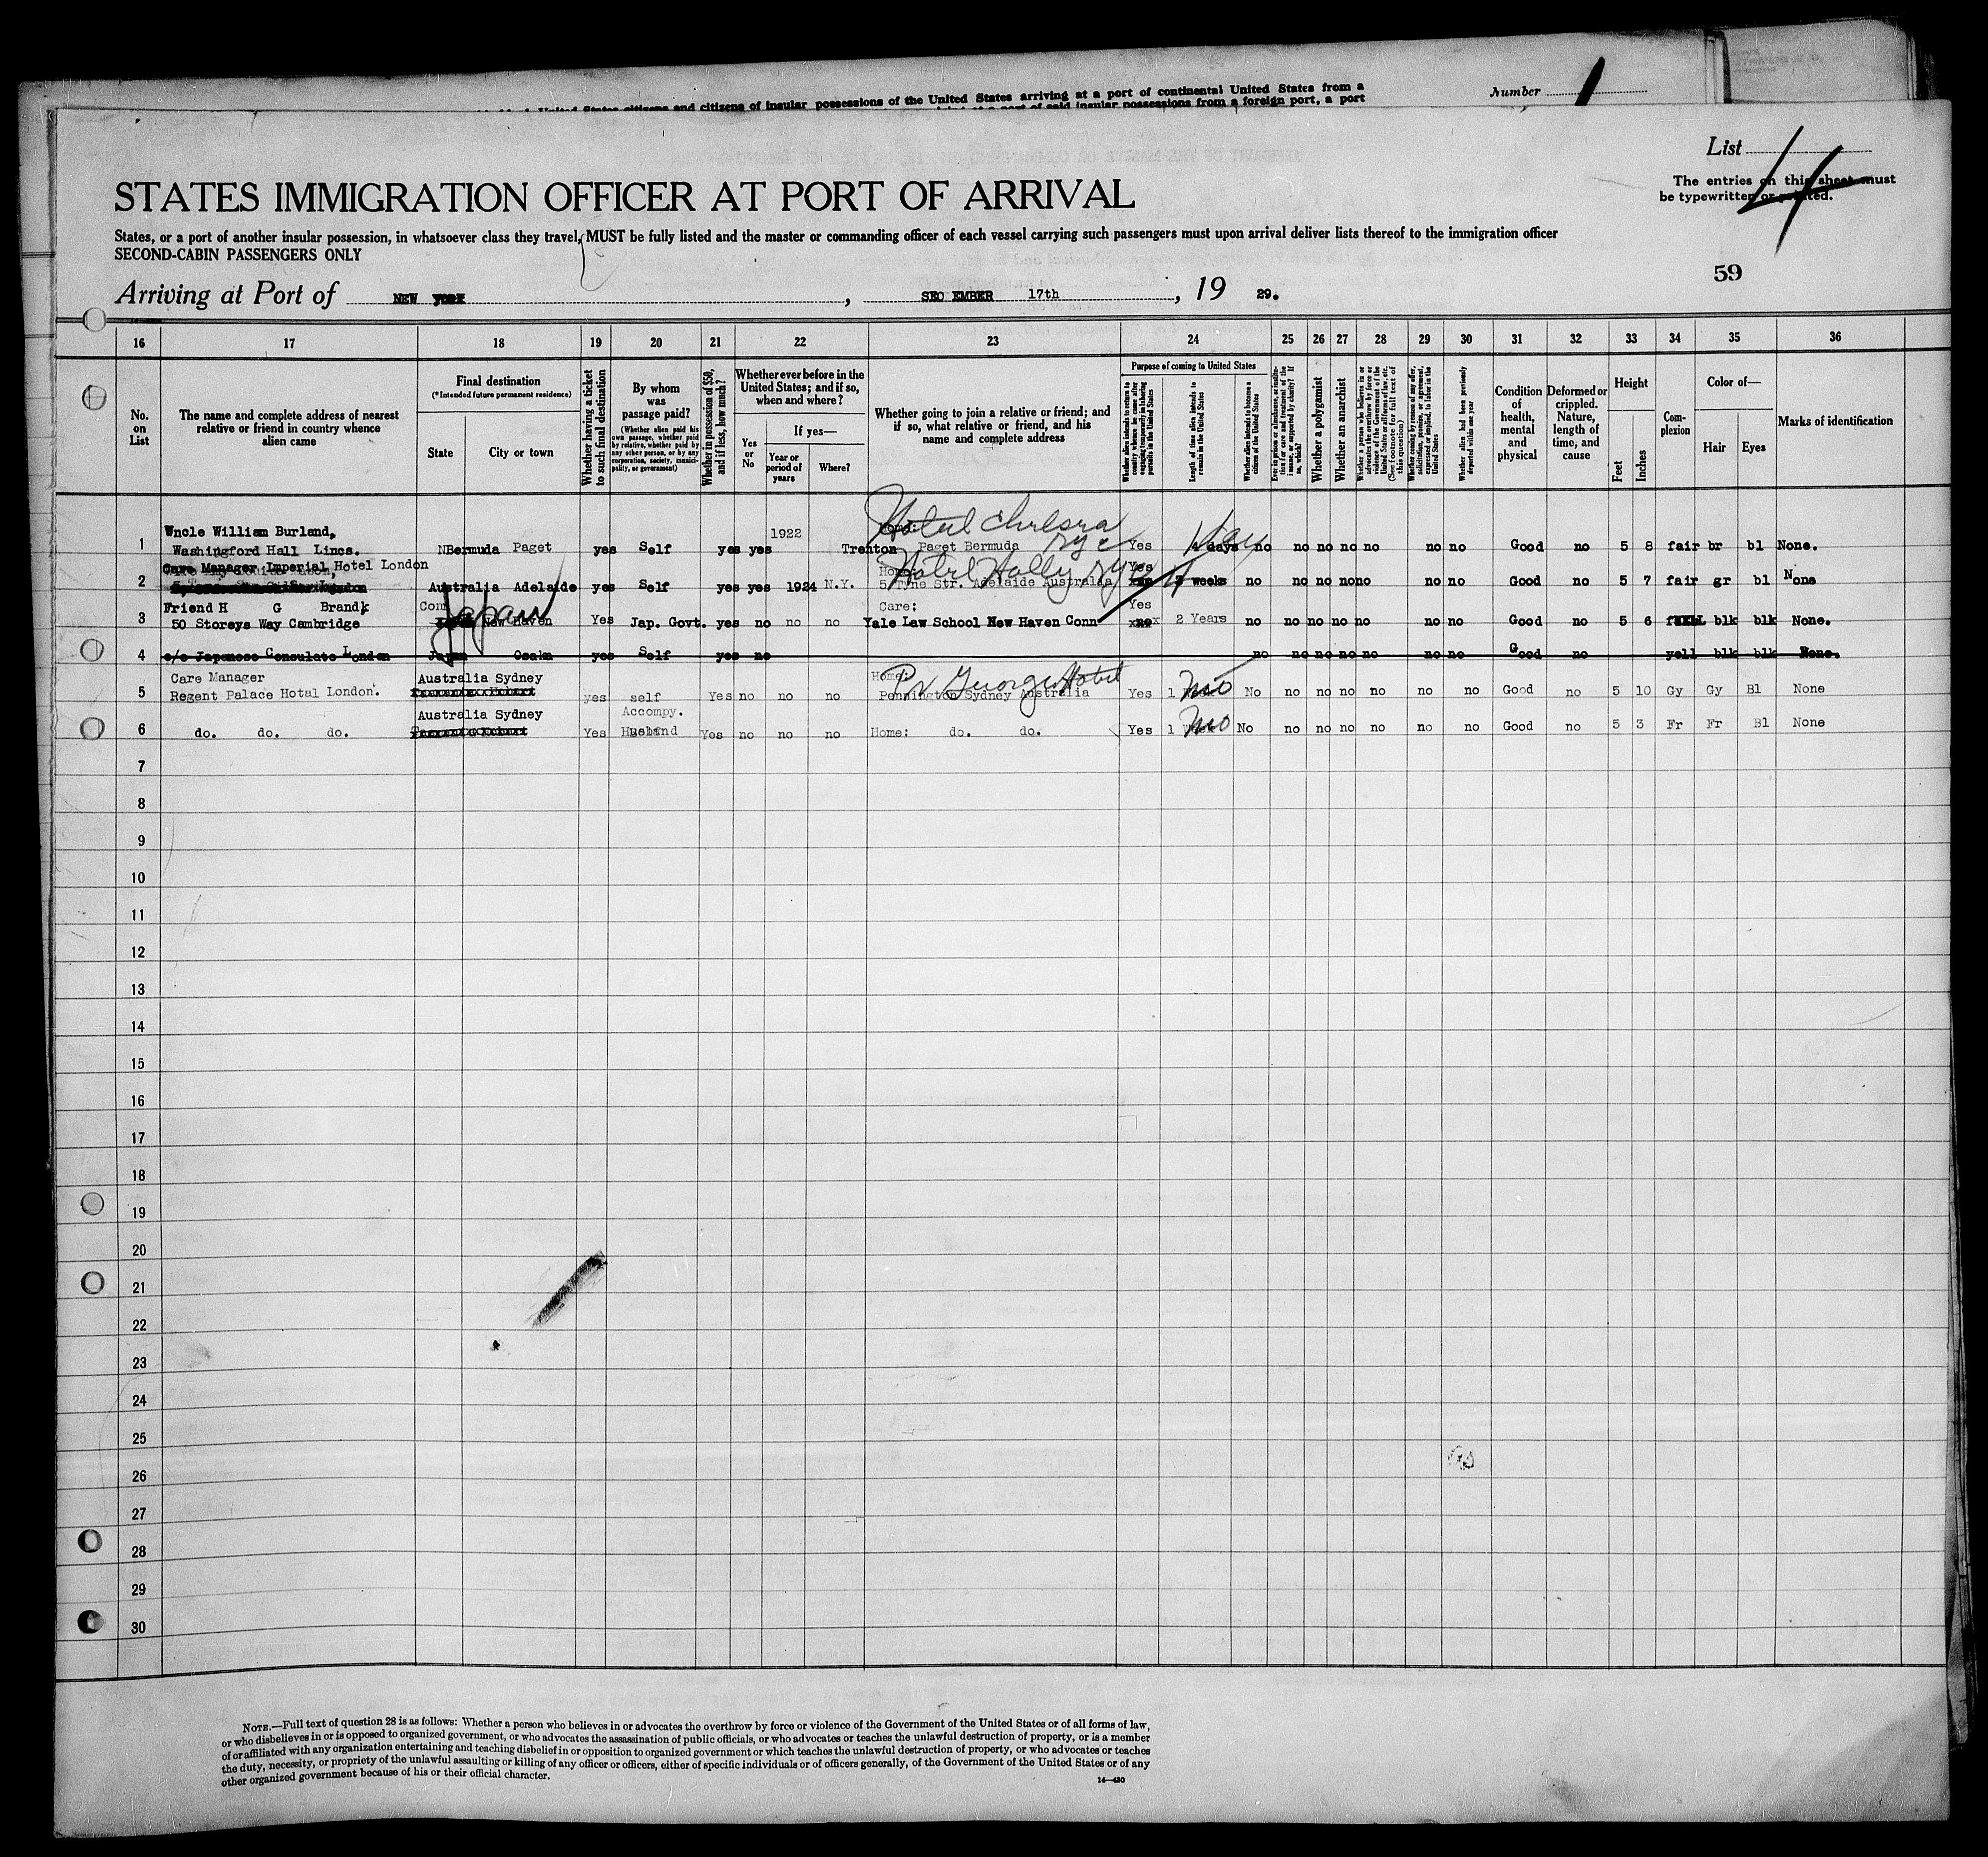 United States citizens and citizens of insular possessions of the United States arriving at a port of continental United States from a
at a port of said insular possessions from a foreign port, a port
Number 1
List 4
The entries on this sheet must
be typewritten or printed.
STATES IMMIGRATION OFFICER AT PORT OF ARRIVAL
States, or a port of another insular possession, in whatsoever class they travel, MUST be fully listed and the master or commanding officer of each vessel carrying such passengers must upon arrival deliver lists thereof to the immigration officer
SECOND-CABIN PASSENGERS ONLY
59
Arriving at Port of NEW YORK, 17th, 19 29.
16 17 18 19 20 21 22 23 24 25 26 27 28 29 30 31 32 33 34 35 36
No. on List
The name and complete address of nearest relative or friend in country whence alien came
Final destination
(*Intended future permanent residence)
State
City or town
Whether having a ticket to such final destination
By whom was passage paid?
(Whether alien paid his own passage, whether paid by relative, whether paid by any other person, or by any corporation, society, municipality, or government)
Whether in possession of $50, and if less, how much?
Whether ever before in the United States; and if so, when and where?
Yes or No
If yes—
Year or period of years
Where?
Whether going to join a relative or friend; and if so, what relative or friend, and his name and complete address
Purpose of coming to United States
Whether alien intends to return to country whence he came after engaging temporarily in laboring pursuits in the United States
Length of time alien intends to remain in the United States
Whether alien intends to become a citizen of the United States
Ever in prison or almshouse, or institution for care and treatment of the insane, or supported by charity? If so, which?
Whether a polygamist
Whether an anarchist
Whether a person who believes in or advocates the overthrow by force or violence of the Government of the United States or all forms of law, etc. (See footnote for full text of this question)
Whether coming by reason of any offer, solicitation, promise, or agreement, expressed or implied, to labor in the United States
Whether alien had been previously deported within one year
Condition of health, mental and physical
Deformed or crippled. Nature, length of time, and cause
Height
Feet
Inches
Complexion
Color of—
Hair
Eyes
Marks of identification
Wncle William Burland, 1922 Hotel Chelsea Home:
1 Washingford Hall Lincs. NBermuda Paget yes Self yes yes Trenton Paget Bermuda NYC Yes 4 days 1 day no no no no no no no Good no 5 8 fair br bl None.
Care Manager Imperial Hotel London Home: Hotel Holly NY Yes
2 Australia Adelaide yes Self yes yes 1924 N.Y. Tyne Str. Adelaide Australia weeks no no no no no no no Good no 5 7 fair gr bl None
Friend H G Brandk Japan Care: Yes
3 50 Storeys Way Cambridge New Haven Yes Jap. Govt. yes no no no Yale Law School New Haven Conn 2 Years no no no no no no no Good no 5 6 blk blk None.
4 c/o Japanese Consulate London Japan Osaka yes Self yes no no no no no no no no Good no yell blk blk None.
Care Manager Australia Sydney Home: Pr George Hotel
5 Regent Palace Hotal London. yes self Yes no no no Pennington Sydney Australia Yes 1 mo No no no no no no no Good no 5 10 Gy Gy Bl None
Australia Sydney Accompy.
6 do. do. do. Yes Husband Yes no no no Home: do. do. Yes 1 mo No no no no no no no Good no 5 3 Fr Fr Bl None
7
8
9
10
11
12
13
14
15
16
17
18
19
20
21
22
23
24
25
26
27
28
29
30
NOTE.—Full text of question 28 is as follows: Whether a person who believes in or advocates the overthrow by force or violence of the Government of the United States or of all forms of law,
or who disbelieves in or is opposed to organized government, or who advocates the assassination of public officials, or who advocates or teaches the unlawful destruction of property, or is a member
of or affiliated with any organization entertaining and teaching disbelief in or opposition to organized government or which teaches the unlawful destruction of property, or who advocates or teaches
the duty, necessity, or propriety of the unlawful assaulting or killing of any officer or officers, either of specific individuals or of officers generally, of the Government of the United States or of any
other organized government because of his or their official character.
14—430